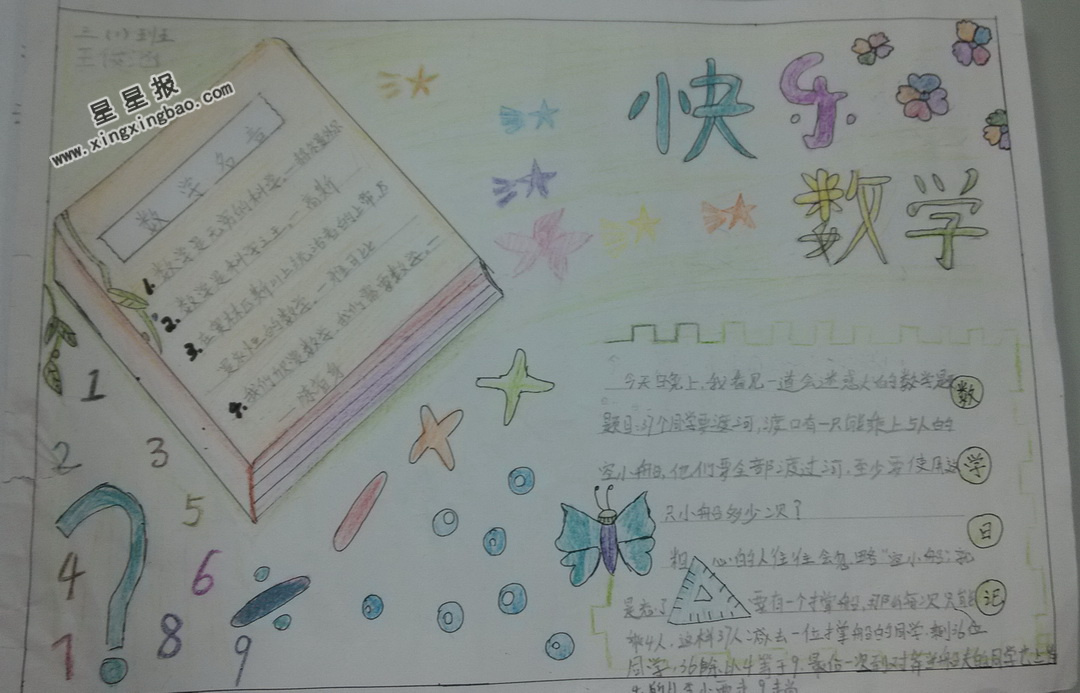 三(1)班
王俊
星星报
www.xingxingbao.com
快乐
数学
数学名言
1.数学是无穷的科学。一赫尔曼外尔
2.数学是科学之王。一高斯
3.在奥林匹斯山上统治着的上帝,乃
是永恒的数学。一雅可比
4.我们欣赏数学,我们需要数学。一
一陈省身
1
2
3
4
5
6
1
8
9
?
数学日记
今天早晚上,我看见一道会迷惑人的数学题
题目:37个同学要渡河,渡口有一只能乘上5人的
空小船,他们要全部渡过河,至少要使用这
只小船多少次?
粗心的人往往会忽略"空小船",就
是忘了要有一个撑船,那么每次只能
乘4人,这样37人减去一位撑船的同学,剩36位
同学,36除以4等于9,最后一次到对岸